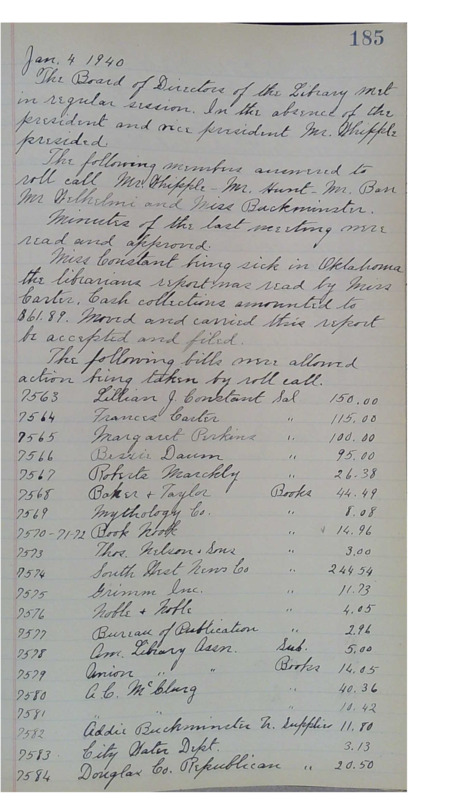 185
Jan. 4 1940
The Board of Directors of the Library met
in regular session. In the absence of the
president and vice president Mr. Whipple
presided
The following members answered to
roll call Mr. Whipple - Mr. Hunt - Mr. Barr
Mr Wilhelmi and Miss Buckminster.
Minutes of the last meeting were
read and approved.
Miss Constant being sick in Oklahoma
the librarians report was read by Miss
Carter. Cash collections amounted to
$61.89. Moved and carried this report
be accepted and filed.
The following bills were allowed
action being taken by roll call.
7563 Lillian J. Constant Sal 150.00
7564 Frances Carter " 115.00
7565 Margaret Perkins " 100.00
7566 Bessie Daum " 95.00
7567 Roberta Marckly " 26.38
7568 Baker & Taylor Books 44.49
7569 Mythology Co. " 8.08
7570-71-72 Book Nook " 14.96
7573 Thos. Nelson & Sons " 3.00
7574 South West News Co " 244.54
7575 Grimm Inc. " 11.73
7576 Noble & Noble " 4.05
7577 Bureau of Publication " 2.96
7578 Am. Library Assn. Sub. 5.00
7579 Union " " Books 14.05
7580 A.C. McClurg " 40.36
7581 " " 10.42
7582 Addie Buckminster Tr. Supplies 11.80
7583 City Water Dept. 3.13
7584 Douglas Co. Republican " 20.50